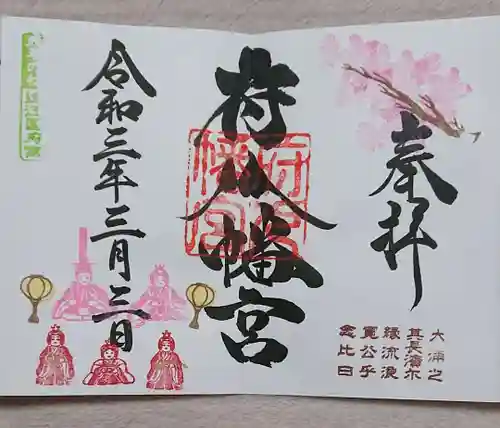 奉拝
府八幡宮
令和三年三月三日
大浦之
其長濱尓
縁流浪
寛公乎
念比日